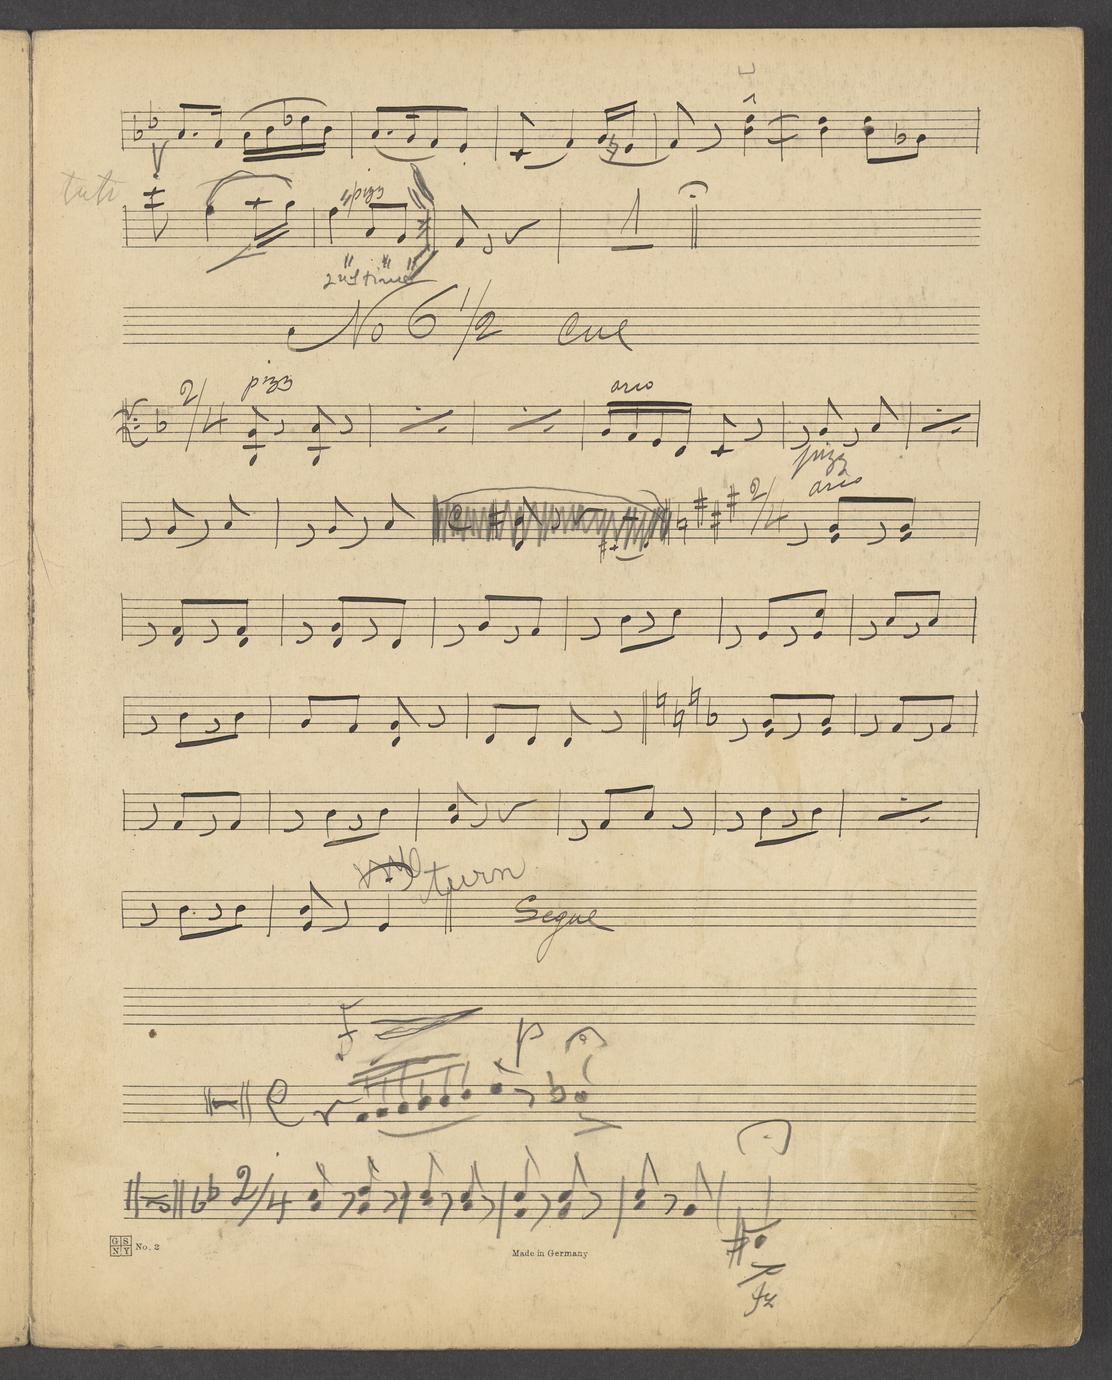 tuti
pizz
2nd time
No 6 1/2 cue
2/4 pizz arco
pizz
2/4 arco
turn
Segue
f p
2/4
fz
GS
NY
No. 2
Made in Germany